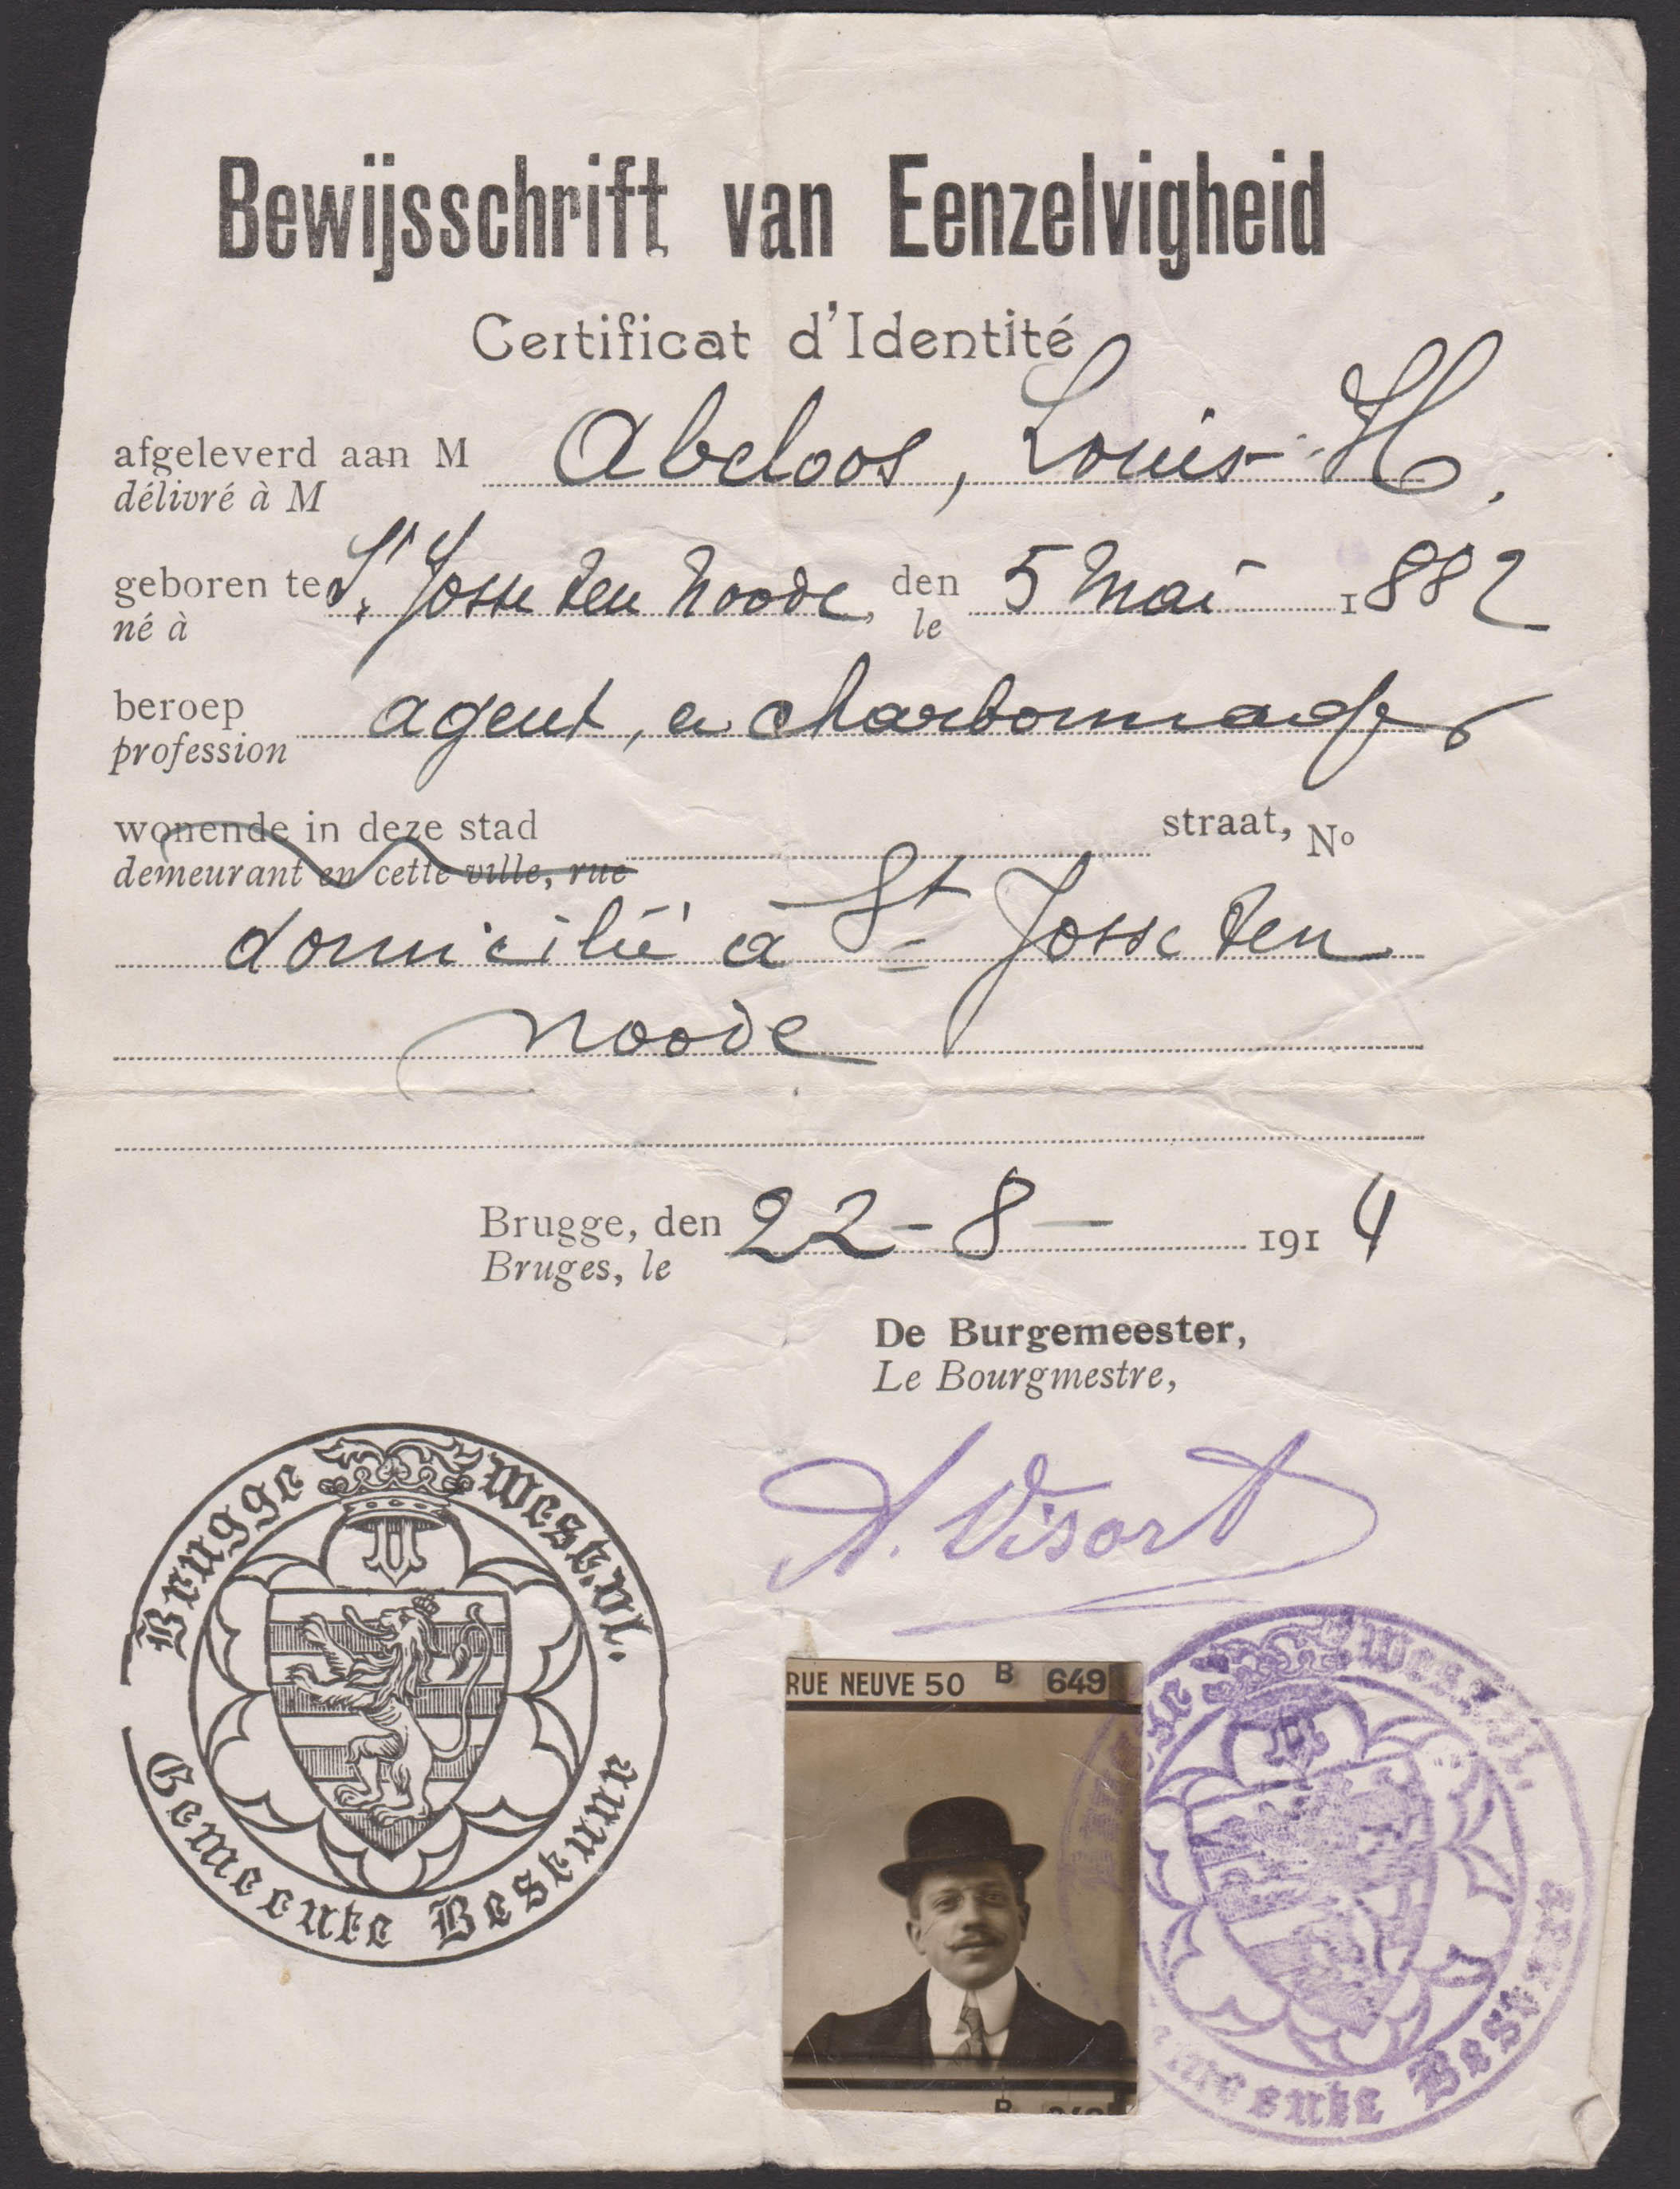 Bewijsschrift van Eenzelvigheid
Certificat d'Identité
afgeleverd aan M Abeloos, Louis-H.
délivré à M
geboren te St Josse ten Noode, den 5 Mai 1882
né à le
beroep agent, en charbonnages
profession
wonende in deze stad straat, No
demeurant en cette ville, rue
domicilié à St Josse ten
Noode
Brugge, den 22-8- 1914
Bruges, le
De Burgemeester,
Le Bourgmestre,
A. Visart
Brugge West.Vl.
Gemeente Bestuur
RUE NEUVE 50 B 649
B
West.Vl.
Bestuur